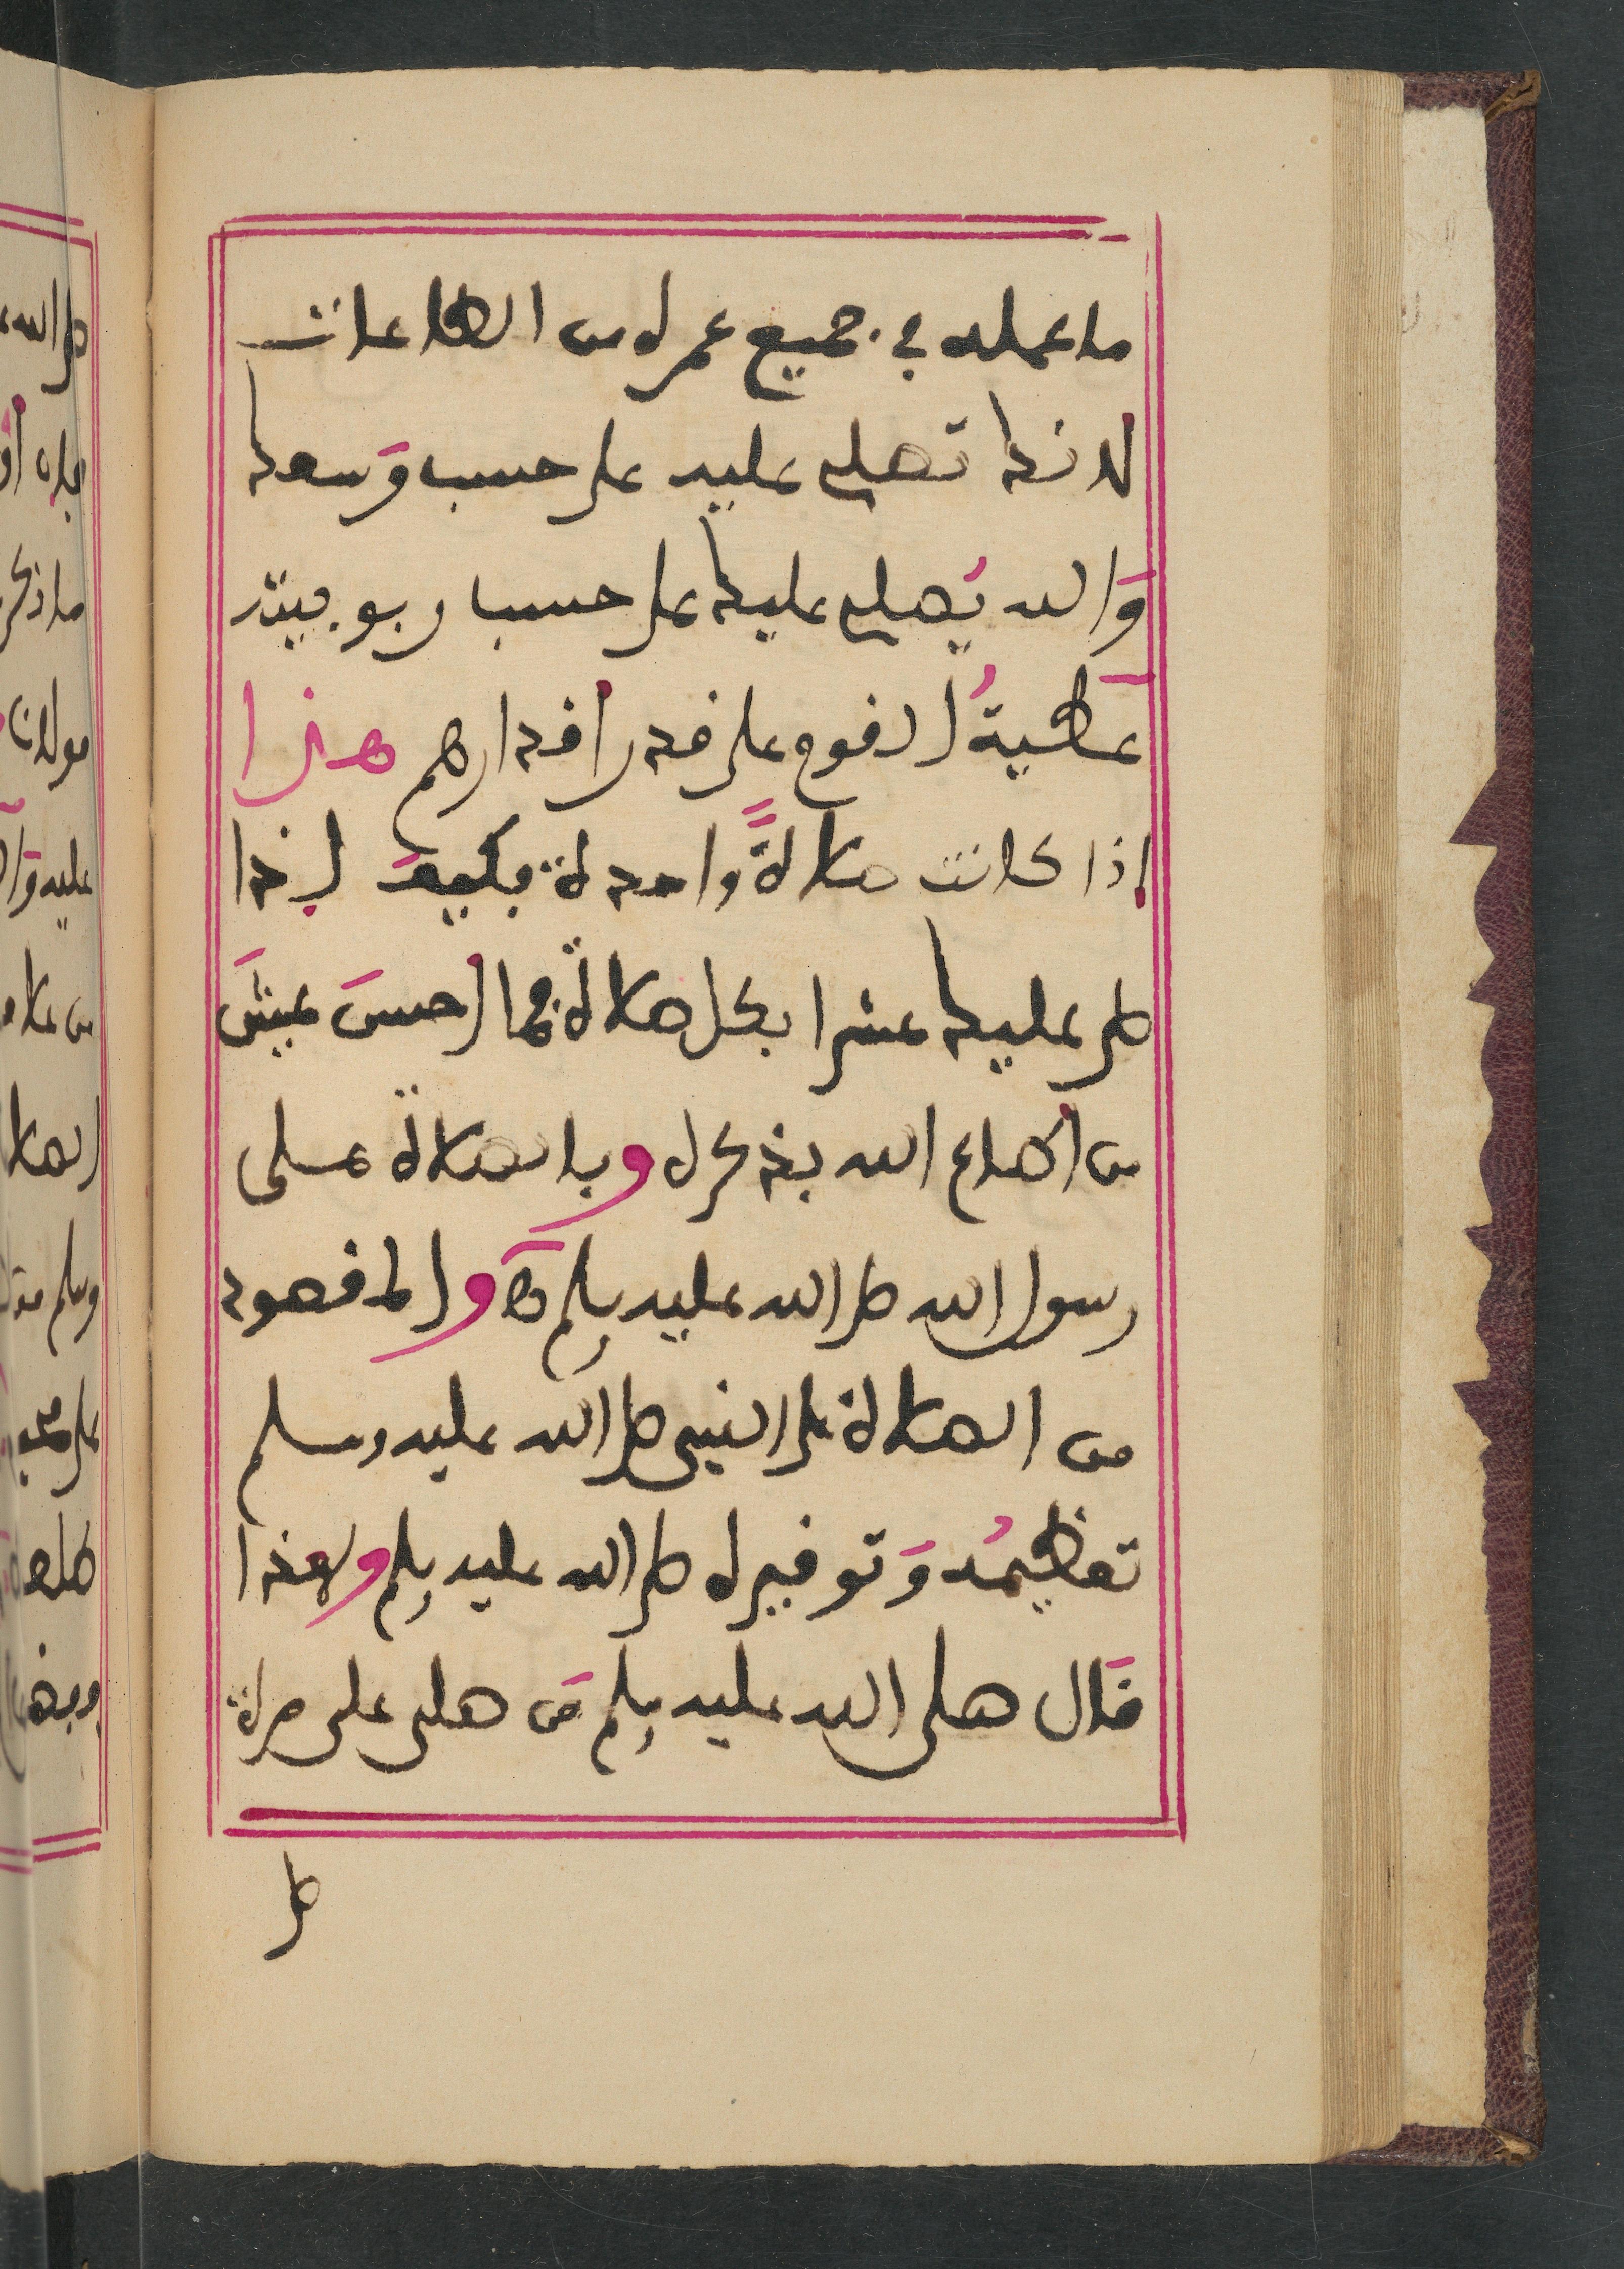 ما عمله في جميع عمره من الطاعات
لانك تصلي عليه على حسب وَسعك
وَالله يُصلي عليك على حسب ربوبيته
عطيةُ القوم على قدر أقدارهم هذا
إذا كانت صلاةً واحدة فكيفَ إذا
صلى عليك عشرا بكل صلاة فما أحسنَ عيشَ
من أطاع الله بذكره وبالصلاة على
رسول الله صلى الله عليه وسلم والمقصود
من الصلاة على النبي صلى الله عليه وسلم
تعظيمُه وَتوقيره صلى الله عليه وسلم ولهذا
قال صلى الله عليه وسلم مَن صلى علي مرة
صلى